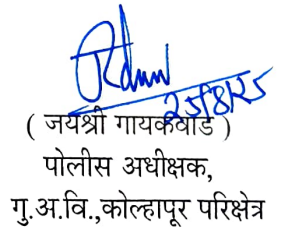 २५/8/२५
( जयश्री गायकवाड )
पोलीस अधीक्षक,
गु.अ.वि.,कोल्हापूर परिक्षेत्र